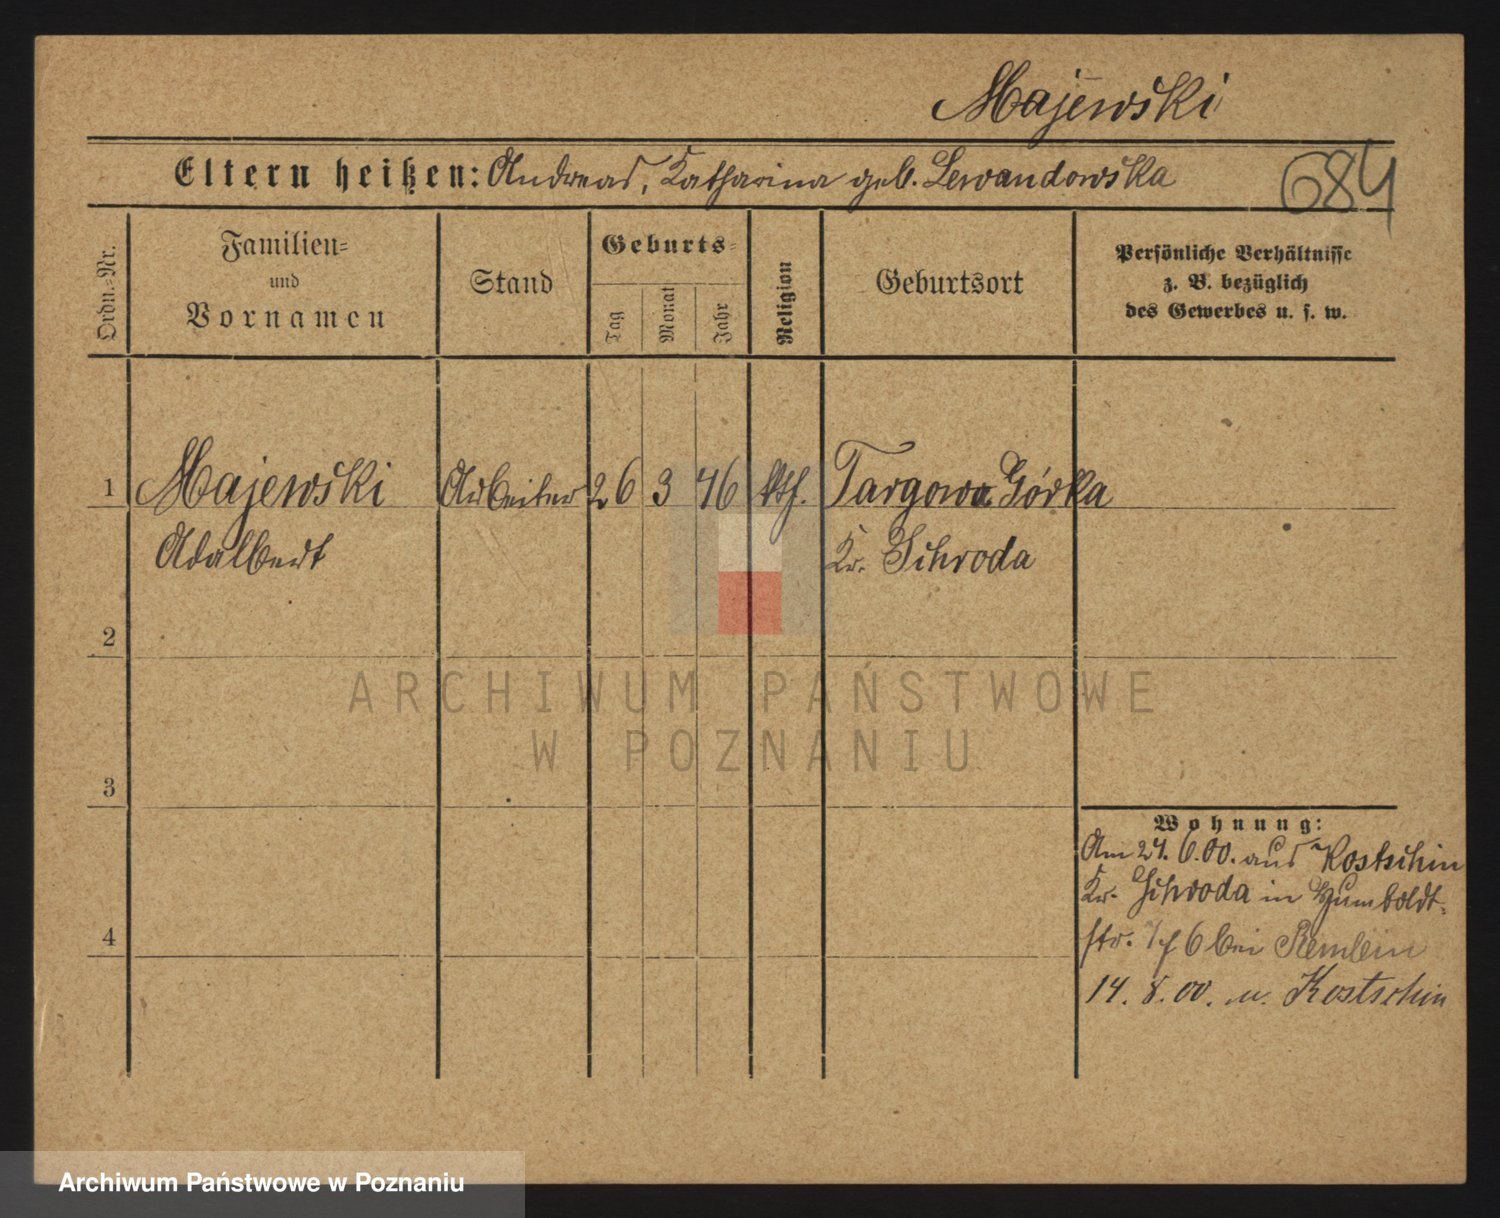 Majewski
Eltern heißen: Andreas, Katharina geb. Lewandowska
684
Ordn.-Nr.
Familien-
und
Vornamen
Stand
Geburts-
Tag
Monat
Jahr
Religion
Geburtsort
Persönliche Verhältnisse
z. B. bezüglich
des Gewerbes u. s. w.
1 Majewski Arbeiter 26 3 46 kth. Targowa Górka
Adalbert Kr. Schroda
2
3
4
Wohnung:
Am 24. 6. 00. aus Kostschin
Kr. Schroda in Humboldt-
str. 6 bei
14. 8. 00. n. Kostschin
ARCHIWUM PAŃSTWOWE
W POZNANIU
Archiwum Państwowe w Poznaniu